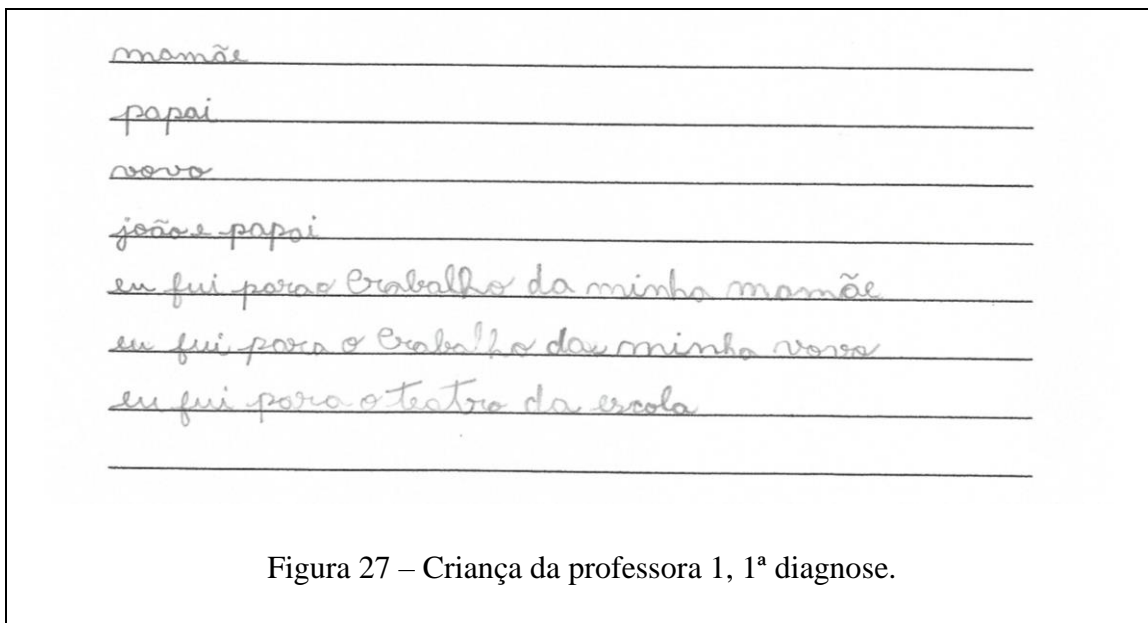 mamãe
papai
vovo
joão e papai
eu fui parao trabalho da minha mamãe
eu fui para o trabalho da minha vovo
eu fui para o teatro da escola
Figura 27 – Criança da professora 1, 1ª diagnose.